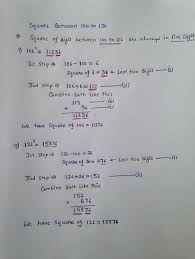 Square Between 100 to 130
Square of digit between 100 to 130 are always in five digit
1) 106² = 11236
1st step :→ 106-100 = 6
Square of 6 = 36 ← Last two digit (i)
2nd step :→ 106+6 = 112 (ii)
Combine both like this
112 (ii)
36 (i)
11236
We have Square of 106 = 11236
2) 126² = 15876
1st step :→ 126-100 = 26
Square of 26 = 676 ← Last two Digit (i)
2nd step :→ 126+26 = 152 (ii)
Combine Both Like This
152
676
15876
We have Square of 126 = 15876